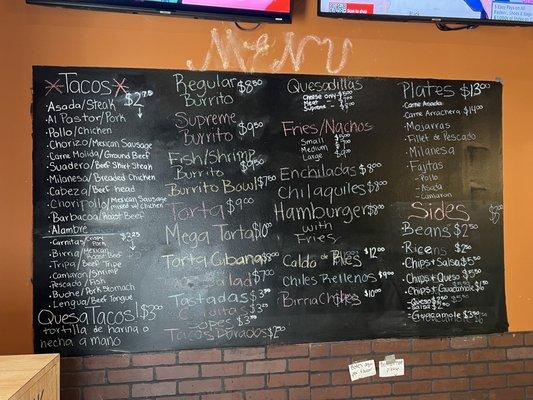 Menu
*Tacos*
$2.75
·Asada/Steak
·Al Pastor/Pork
·Pollo/Chicken
·Chorizo/Mexican Sausage
·Carne Molida/Ground Beef
·Suadero/Beef Shirt Steak
·Milanesa/Breaded Chicken
·Cabeza/Beef head
·Choripollo/Mexican Sausage
mixed w/ chicken
·Barbacoa/Roast Beef
·Alambre
·Carnitas/
Pork
·Birria/Mexican
Roast Beef
·Tripa/Beef Tripe
·Camaron/Shrimp
·Pescado/Fish
·Buche/Pork Stomach
·Lengua/Beef Tongue
QuesaTacos $3.50
tortilla de harina o
hecha a mano
Regular $8.50
Burrito
Supreme
Burrito $9.50
Fish/Shrimp
Burrito $9.50
Burrito Bowl $7.50
Torta $9.00
Mega Torta $10.00
Torta Cubana
Salad $7.00
Tostadas $3.50
Sopes $3.50
Tacos Dorados $2.50
Quesadillas
Cheese only
Meat
Supreme
Fries/Nachos
Small
Medium
Large
Enchiladas $8.00
Chilaquiles $8.00
Hamburger $8.00
with
Fries
Caldo de Res $12.00
Chiles Rellenos $9.00
Birria Chiles $10.00
Plates $13.00
·Carne Asada
·Carne Arrachera $14.00
·Mojarras
·Fillet de Pescado
·Milanesa
·Fajitas
-Pollo
-Asada
-Camaron
Sides
Beans $2.50
Rice $2.50
·Chips+Salsa $5.50
·Chips+Queso $5.50
·Chips+Guacamole $6.50
·Queso
·Guacamole